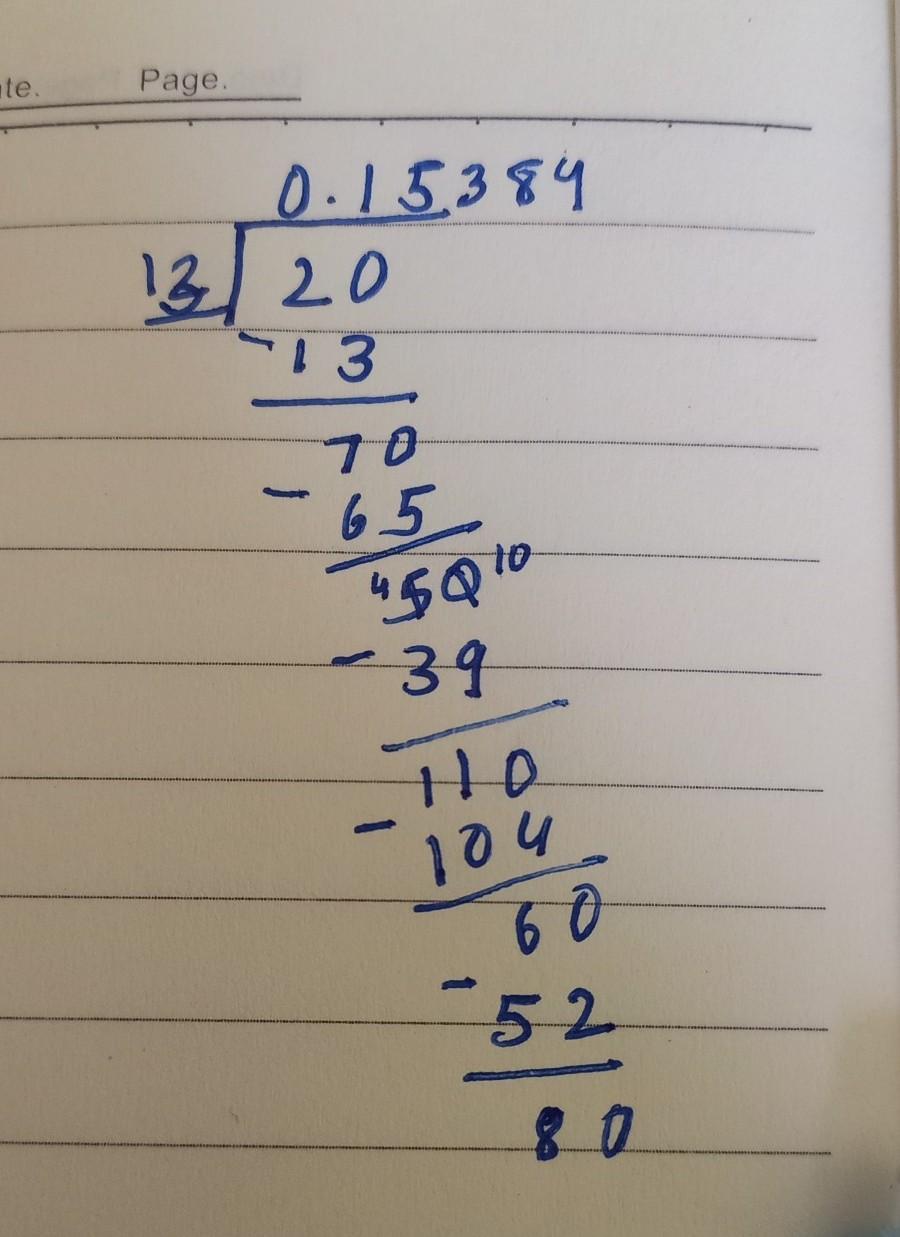 ate. Page.
0.15384
13 20
-13
70
- 65
4 50 10
- 39
110
- 104
60
- 52
80